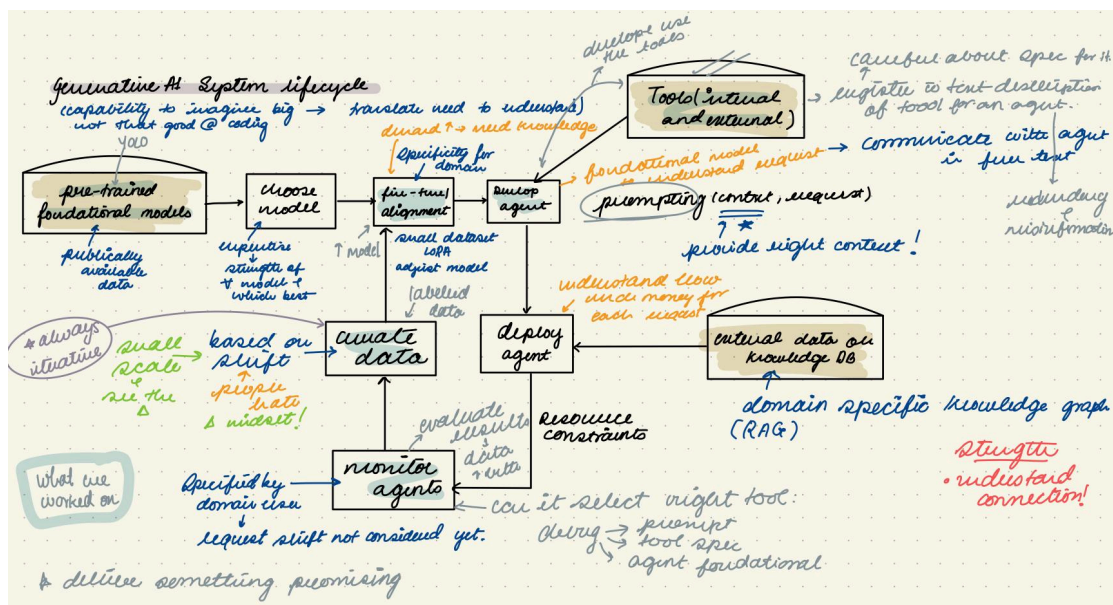 Generative AI System Lifecycle
(capability to imagine big → translate need to understand)
not that good @ coding
YOLO
pre-trained
foundational models
publically
available
data
choose
model
expertise
strength of
∀ model &
which best
demand ↑ → need knowledge
specificity for
domain
fine-tune/
alignment
↑ model
small dataset
LoRA
adjust model
labeled
data
develop
agent
develope use
the tools
Tools (internal
and external)
careful about spec for it.
register to text description
of tool for an agent.
redundancy
&
misinformation
foundational model
to understand request
→ communicate with agent
in free text
prompting (context, request)
*
provide right context!
understand how
much money for
each request
deploy
agent
external data or
knowledge DB
domain specific knowledge graph
(RAG)
* always
iterative
small
scale
&
see the
Δ
based on
shift
people
hate
Δ mindset!
curate
data
evaluate
results
data
Resource
constraints
what we
worked on
specified by
domain user
request shift not considered yet.
monitor
agents
can it select right tool:
debug → prompt
→ tool spec
agent foundational
strength
• understand
connection!
* deliver something promising